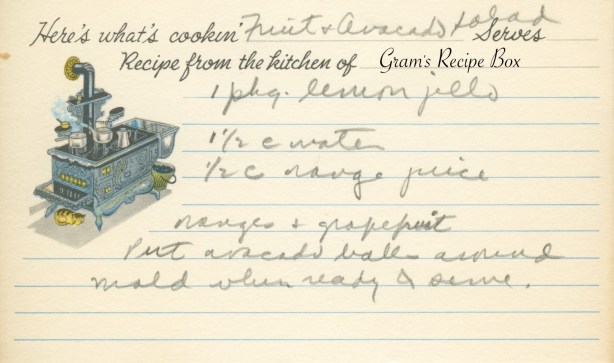 Here's what's cookin' Fruit & Avocado Salad Serves
Recipe from the kitchen of Gram's Recipe Box
1 pkg. lemon jello
1 1/2 c water
1/2 c orange juice
oranges & grapefruit
Put avocado balls around
mold when ready to serve.